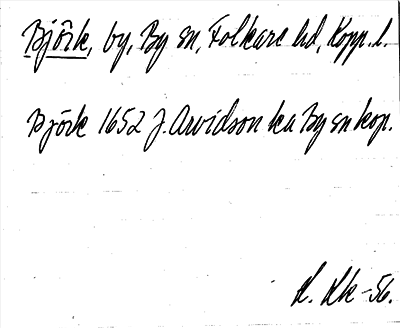 Björk, by, By sn, Folkare hd, Kopp. l.
Björk 1652 J. Arvidson ka By sn kop.
K. Kk -56.